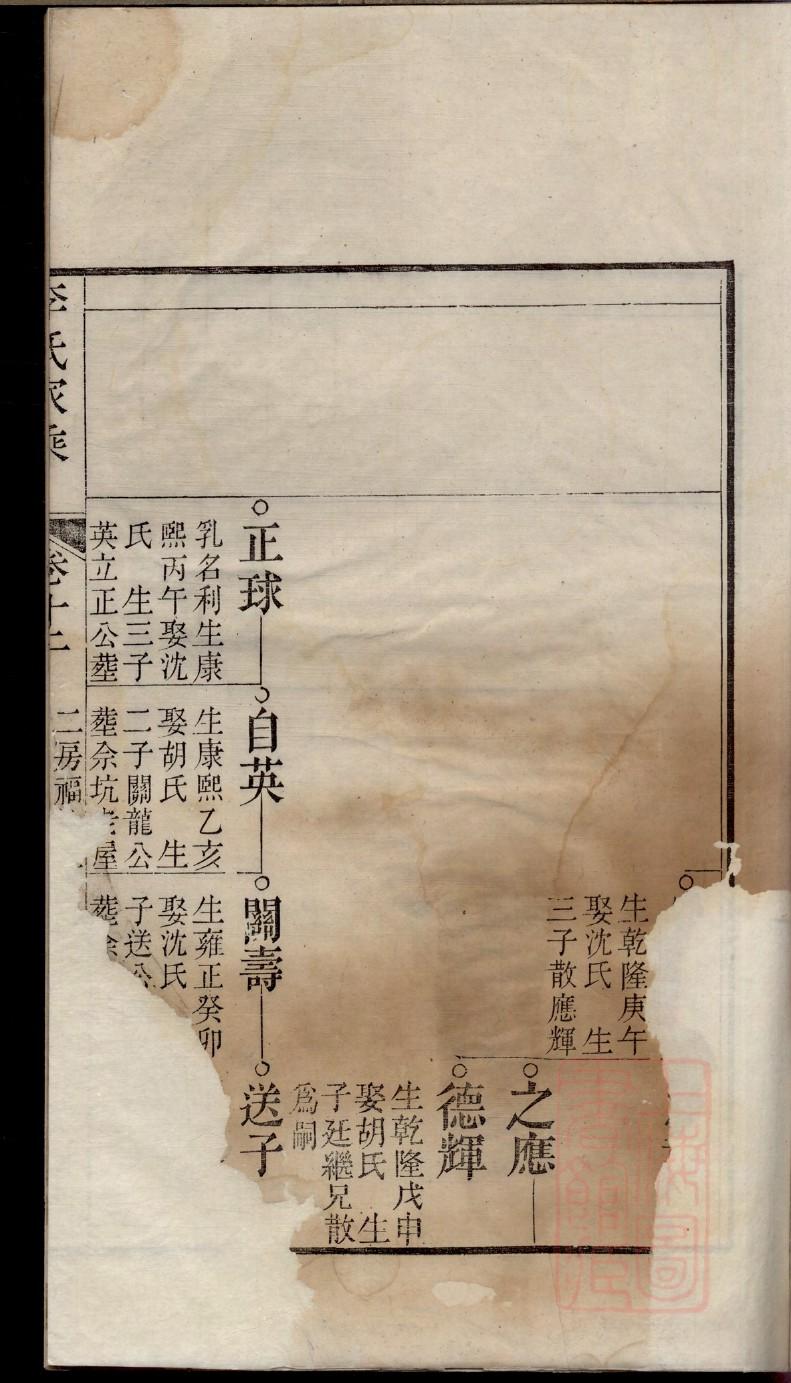 生乾隆庚午
娶沈氏 生
三子散應輝
之應
德輝
生乾隆戊申
娶胡氏 生
子廷繼兄散
爲嗣
正球
乳名利生康
熙丙午娶沈
氏 生三子
英立正公塟
自英
生康熙乙亥
娶胡氏 生
二子關龍公
塟佘坑 屋
關壽
生雍正癸卯
娶沈氏
子送公
塟
送子
李氏家乘
卷十二
二房福